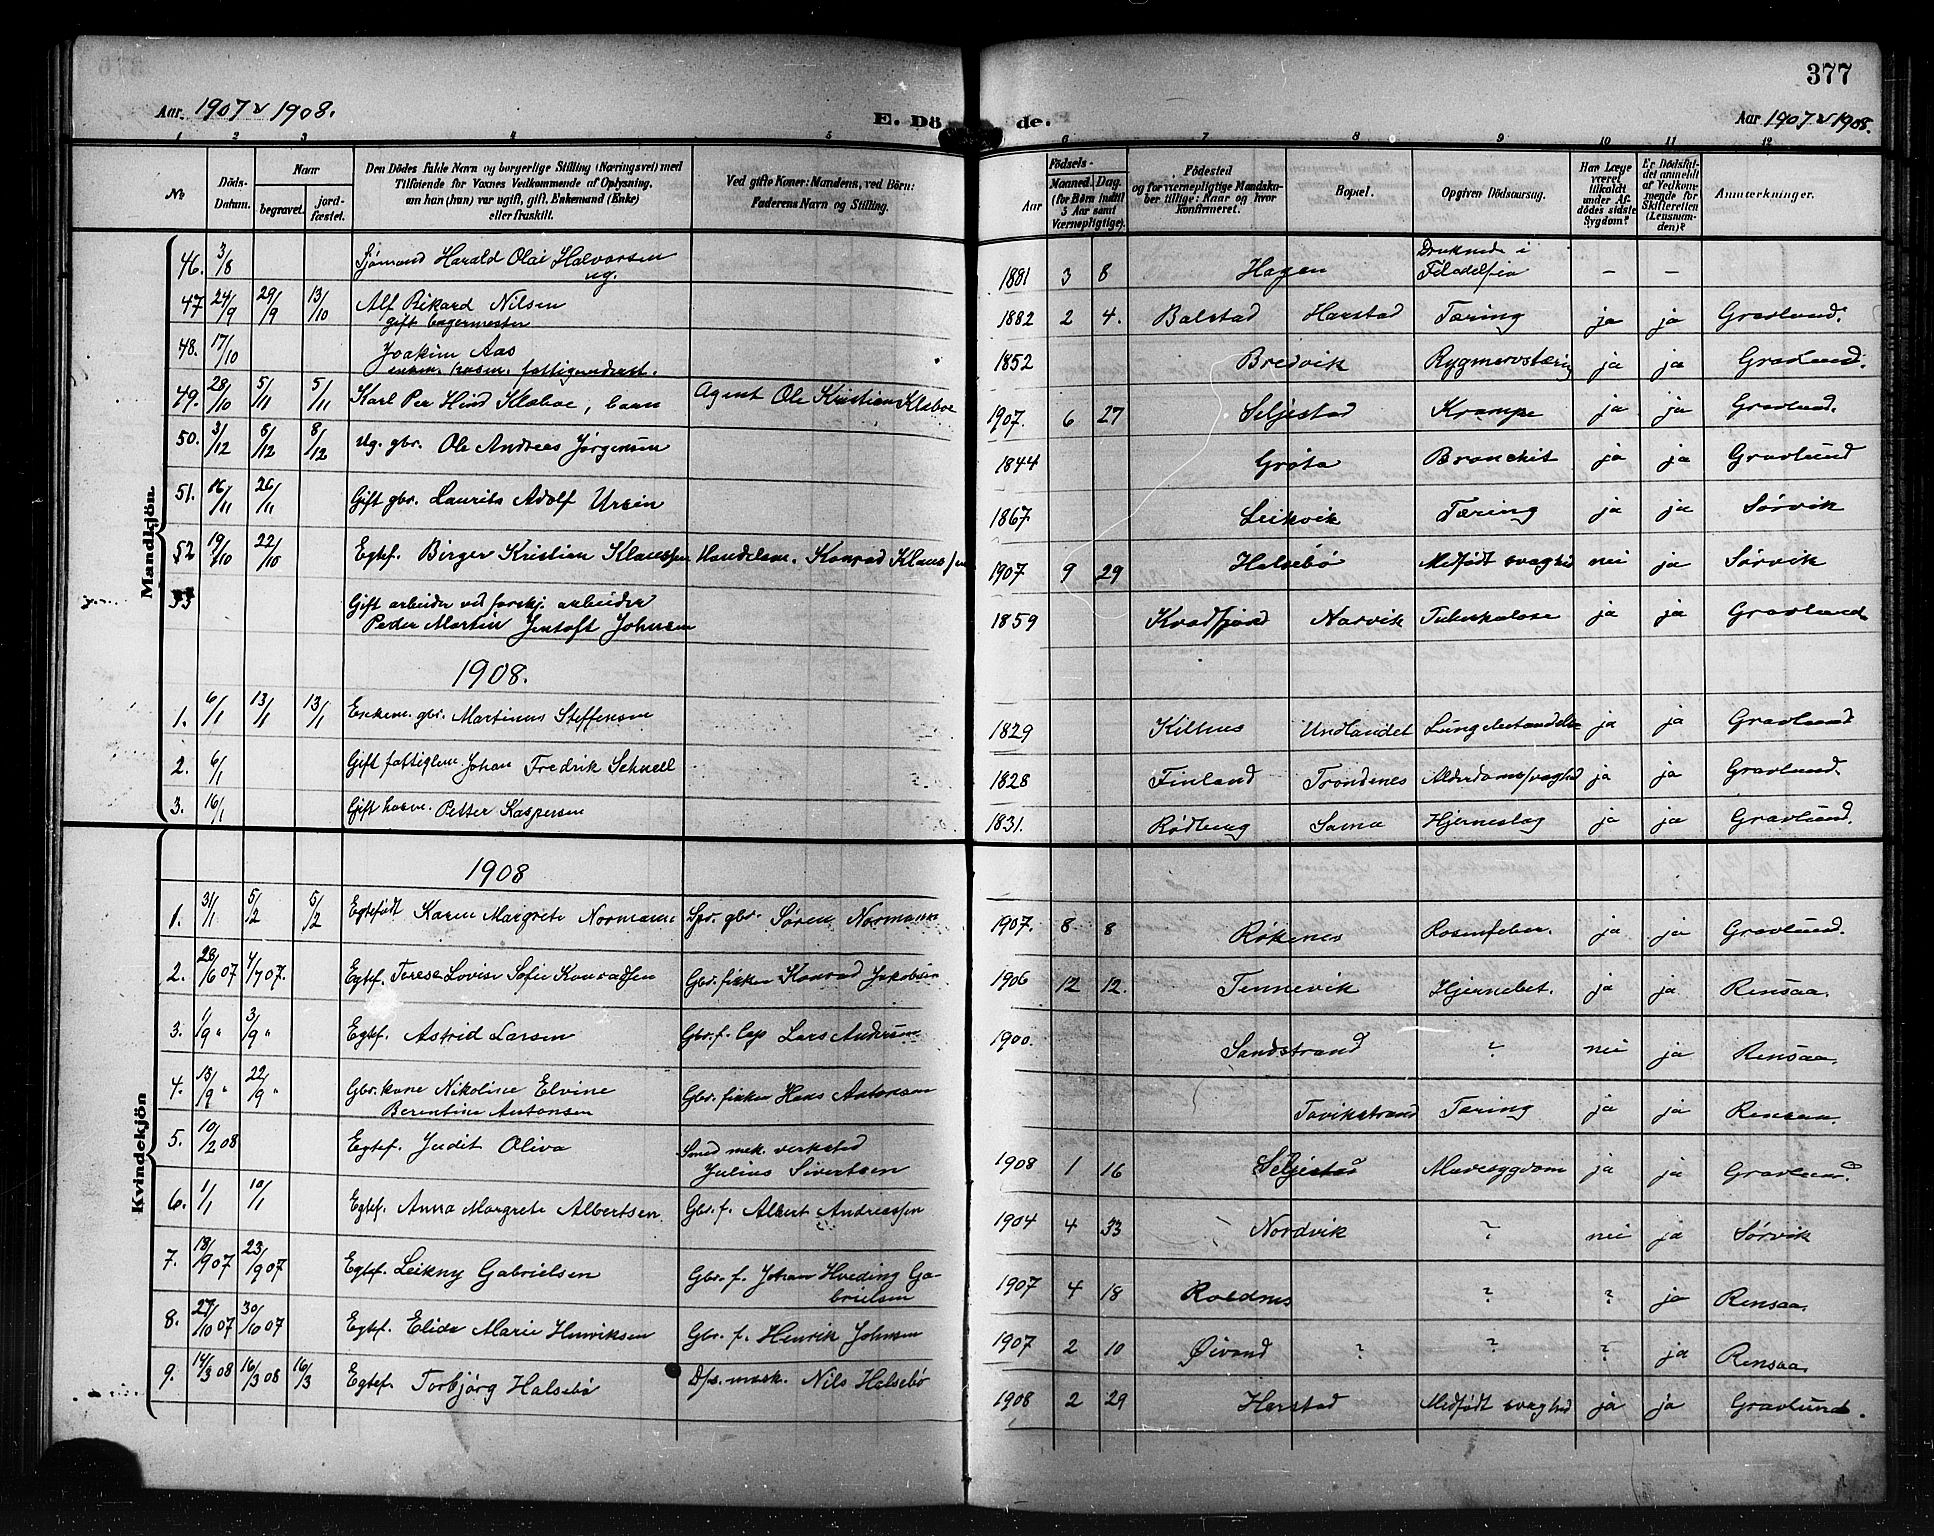 377
Aar. 1907 & 1908.
E. Döde.
Aar 1907 & 1908.
1 2 3 4 5 6 7 8 9 10 11 12
No
Döds-Datum.
Naar
begravet.
jordfæstet.
Den Dödes fulde Navn og borgerlige Stilling (Næringsvei) med
Tilföiende for Voxnes Vedkommende af Oplysning,
om han (hun) var ugift, gift, Enkemand (Enke)
eller fraskilt.
Ved gifte Koner: Mandens, ved Börn:
Faderens Navn og Stilling.
Födsels-
Aar
Maaned. Dag.
(for Börn indtil 5 Aar samt Værnepligtige).
Födested
og for værnepligtige Mandskaber tillige: Naar og hvor Konfirmeret.
Bopæl.
Opgiven Dödsaarsag.
Har Læge været tilkaldt under Afdödes sidste Sygdom?
Er Dödsfaldet anmeldt af Vedkommende for Skifteretten (Lensmanden)?
Anmærkninger.
Mandkjön.
46. 3/8 Sjømand Harald Olai Halvorsen ug. 1881 3 8 Hagen Druknede i Filadelfia – –
47 24/9 29/9 13/10 Alf Rikard Nilsen gift bagermester 1882 2 4. Balstad Harstad Tæring ja ja Gravlund.
48. 17/10 Joakim Aas enkem. fattigunderst. 1852 Bredvik Rygmarvstæring ja ja Gravlund.
49. 28/10 5/11 5/11 Karl Per Hind Klæboe, barn Agent Ole Kristian Klæboe 1907. 6 27 Seljestad Krampe ja ja Gravlund.
50. 3/12 8/12 8/12 Ug. gbr. Ole Andreas Jørgensen 1844 Grøta Bronchit ja ja Gravlund
51. 16/11 26/11 Gift gbr. Laurits Adolf Ursin 1867 Leikvik Tæring ja ja Sørvik
52 19/10 22/10 Egtef. Birger Kristian Klaussen Handelsm. Konrad Klaussen 1907 9 29 Halsebø Medfødt svaghed nei ja Sørvik
53 Gift arbeider ved forskj. arbeider
Peder Martin Jentoft Johnsen 1859 Kvadfjord Narvik Tuberkulose ja ja Gravlund
1908.
1. 6/1 13/1 13/1 Enkem. gbr. Martinus Steffensen 1829 Kilhus Undlandet Lungebetændelse ja ja Gravlund
2. 6/1 Gift fattiglem Johan Fredrik Schnell 1828 Finland Trondenes Alderdomssvaghed ja ja Gravlund.
3. 16/1 Gift husm. Petter Kaspersen 1831. Rødberg Sama Hjerneslag ja ja Gravlund.
Kvindekjön
1908
1. 31/1 5/2 5/2 Egtefødt Karen Margrete Normann Gbr. Søren Normann 1907. 8 8 Røkenes Rosenfeber ja ja Gravlund.
2. 28/6 07 4/7 07. Egtef. Terese Lovise Sofie Konradsen Gbr. fisker Konrad Jakobsen 1906 12 12. Tennevik Hjernebet. ja ja Rensaa.
3. 1/9 " 3/9 " Egtef. Astrid Larsen Gbr. f. Lars Andersen 1900. Sandstrand ? nei ja Rensaa.
4. 15/9 " 22/9 " Gbr. kone Nikoline Elvine
Berentine Antonsen Gbr. fisker Hans Antonsen Tovikstrand Tæring ja ja Rensaa.
5. 10/2 08 Egtef. Judit Oliva Smed mek. verksted
Julius Sivertsen 1908 1 16 Seljestad Mavesygdom ja ja Gravlund.
6. 1/1 10/1 Egtef. Anna Margrete Albertsen Gbr. f. Albert Andreassen 1904 4 33 Nordvik ? nei ja Sørvik
7. 18/9 07 23/9 07 Egtef. Leikny Gabrielsen Gbr. f. Johan Hveding Gabrielsen 1907 4 18 Roldnes ? ? ja Rensaa.
8. 27/10 07 30/10 07 Egtef. Elida Marie Henriksen Gbr. f. Henrik Johnsen 1907 2 10 Øivand ? ? ? ja Rensaa.
9. 14/3 08 16/3 08 16/3 Egtef. Torbjørg Halsebø Dps. mask. Nils Halsebø 1908 2 29 Harstad Medfødt svaghed ja ja Gravlund.